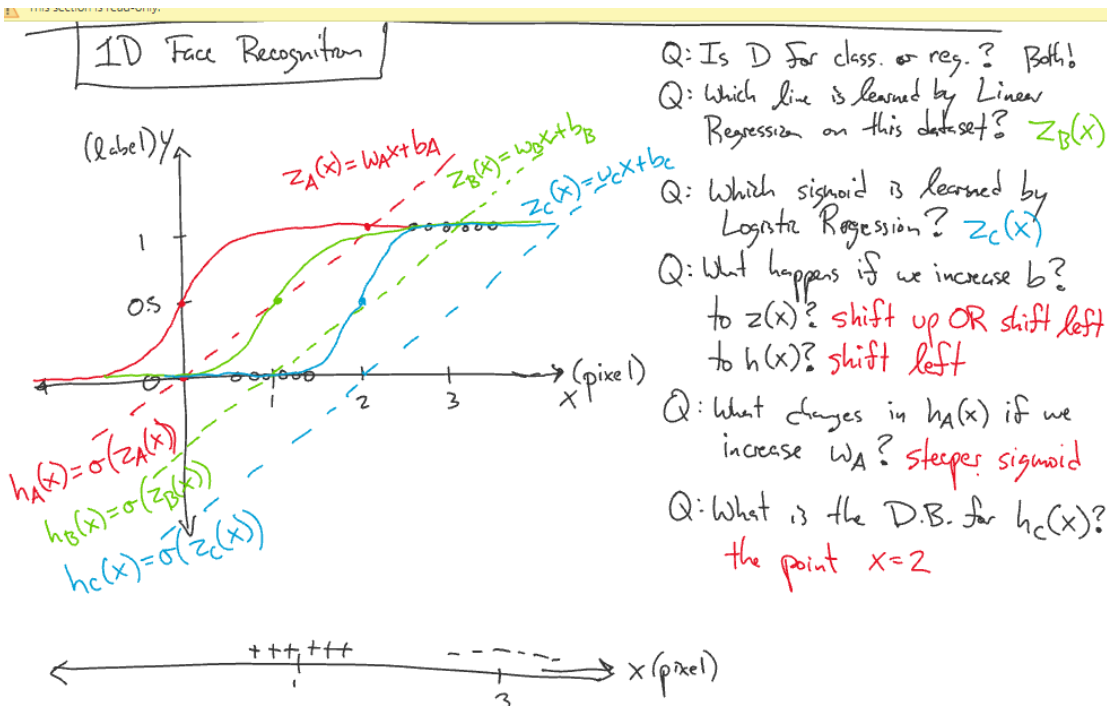 This section is read-only.
1D Face Recognition
(label) Y
1
0.5
0
1
2
3
x (pixel)
z_A(x) = w_Ax + b_A
z_B(x) = w_Bx + b_B
z_C(x) = w_Cx + b_C
h_A(x) = σ(z_A(x))
h_B(x) = σ(z_B(x))
h_C(x) = σ(z_C(x))
+++,+++
- - - - -
1
3
x (pixel)
Q: Is D for class. or reg.? Both!
Q: Which line is learned by Linear
Regression on this dataset? z_B(x)
Q: Which sigmoid is learned by
Logistic Regression? z_C(x)
Q: What happens if we increase b?
to z(x)? shift up OR shift left
to h(x)? shift left
Q: What changes in h_A(x) if we
increase w_A? steeper sigmoid
Q: What is the D.B. for h_C(x)?
the point x=2